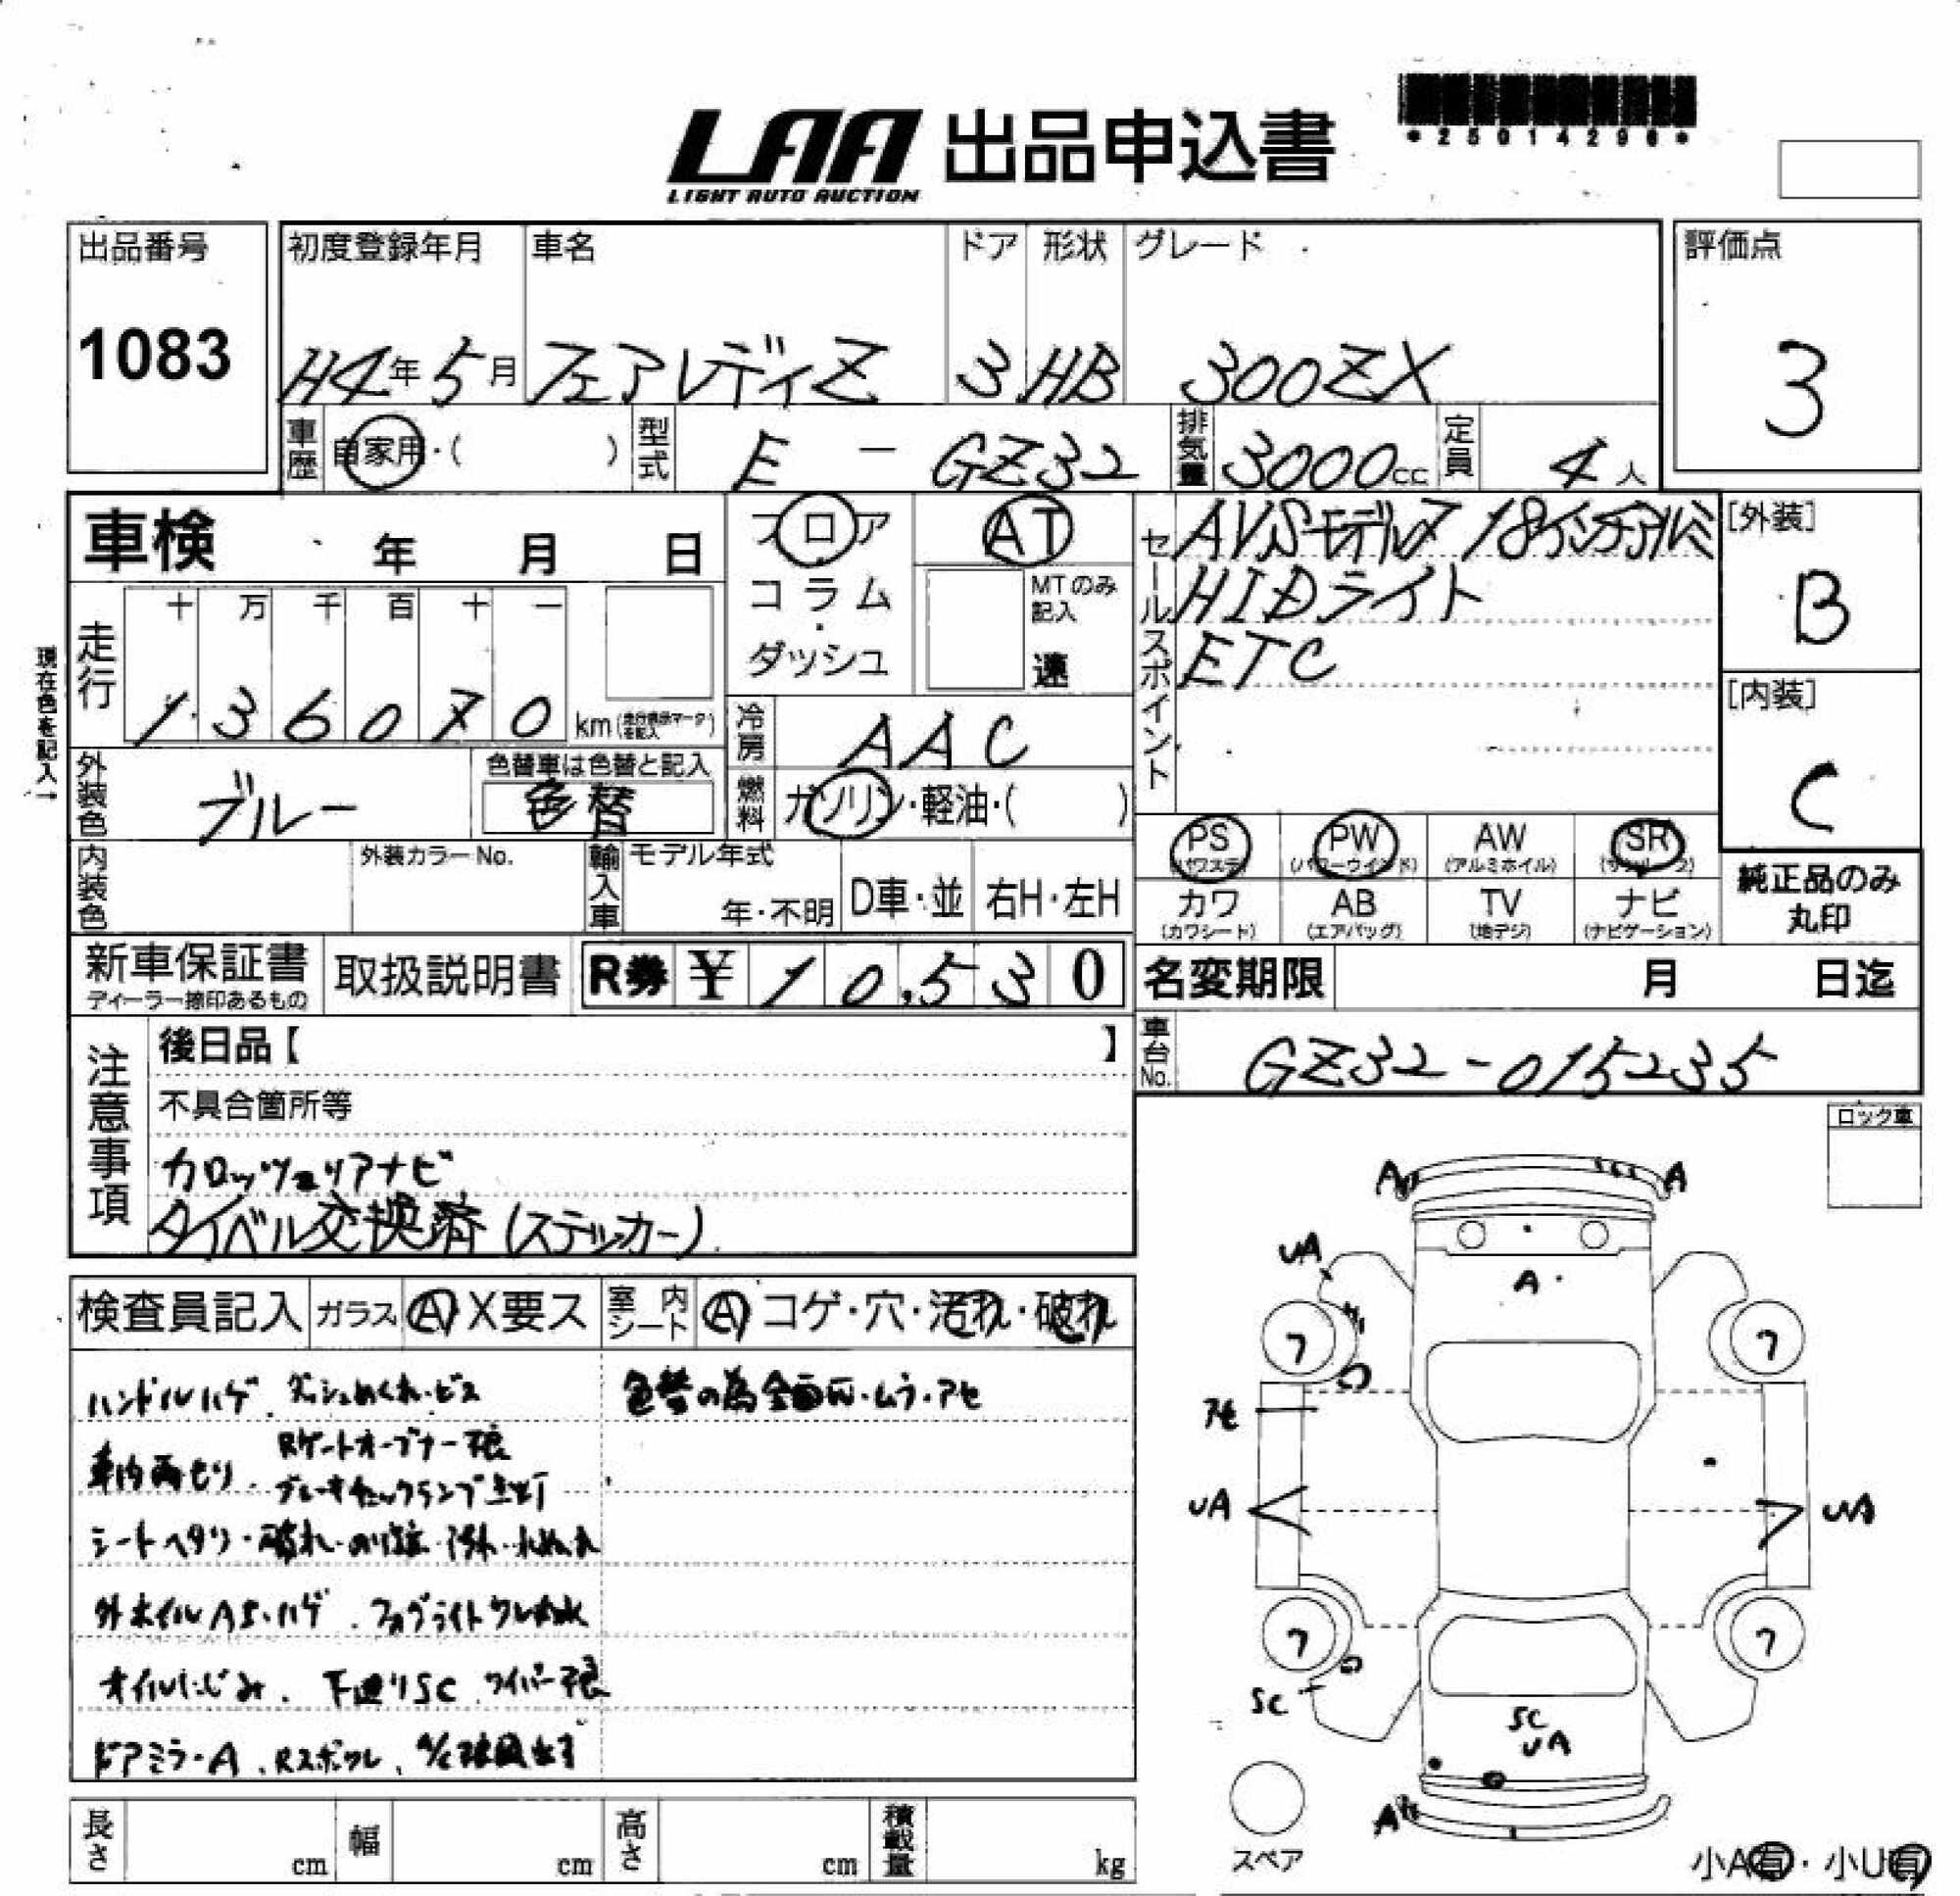 LAA 出品申込書
LIGHT AUTO AUCTION
*25014296*
出品番号
1083
初度登録年月 車名 ドア 形状 グレード
H4年5月 フェアレディZ 3 HB 300ZX
評価点
3
車歴 自家用・( ) 型式 E - GZ32 排気量 3000cc 定員 4人
車検 年 月 日
フロア
コラム
・
ダッシュ
AT
MTのみ
記入
速
セールスポイント
AVSモデル7 18インチアルミ
HIDライト
ETC
[外装]
B
[内装]
C
現在色を記入→
走行
十 万 千 百 十 一
1 3 6 0 7 0 km (走行表示マーク)
を記入
冷房 AAC
外装色 ブルー
色替車は色替と記入
色替
燃料 ガソリン・軽油・( )
PS
(パワステ)
PW
(パワーウインド)
AW
(アルミホイル)
SR
(サンルーフ)
カワ
(カワシート)
AB
(エアバッグ)
TV
(地デジ)
ナビ
(ナビゲーション)
純正品のみ
丸印
内装色 外装カラーNo. 輸入車 モデル年式
年・不明 D車・並 右H・左H
新車保証書
ディーラー捺印あるもの
取扱説明書 R券 ¥ 10,530
名変期限 月 日迄
車台No. GZ32-015235
注意事項
後日品【 】
不具合箇所等
カロッツェリアナビ
タイベル交換済(ステッカー)
ロック車
検査員記入 ガラス A X要ス 室内シート A コゲ・穴・汚れ・破れ
ハンドルハゲ、ダッシュめくれ・ビス
色替の為全面ムラ・アセ
車内雨もり、
Rゲートオープナー不良
ブレーキチェックランプ点灯
シートヘタリ・破れ・汚れ
外ホイルAS・ハゲ、フォグライトワレ
オイルにじみ、下廻りSC、ワイパー不良
ドアミラーA、Rスポワレ、A/C
A A
UA
A
フ フ
アセ
UA UA
フ フ
SC
SC
UA
A
スペア
小A有・小U有
長さ cm 幅 cm 高さ cm 積載量 kg